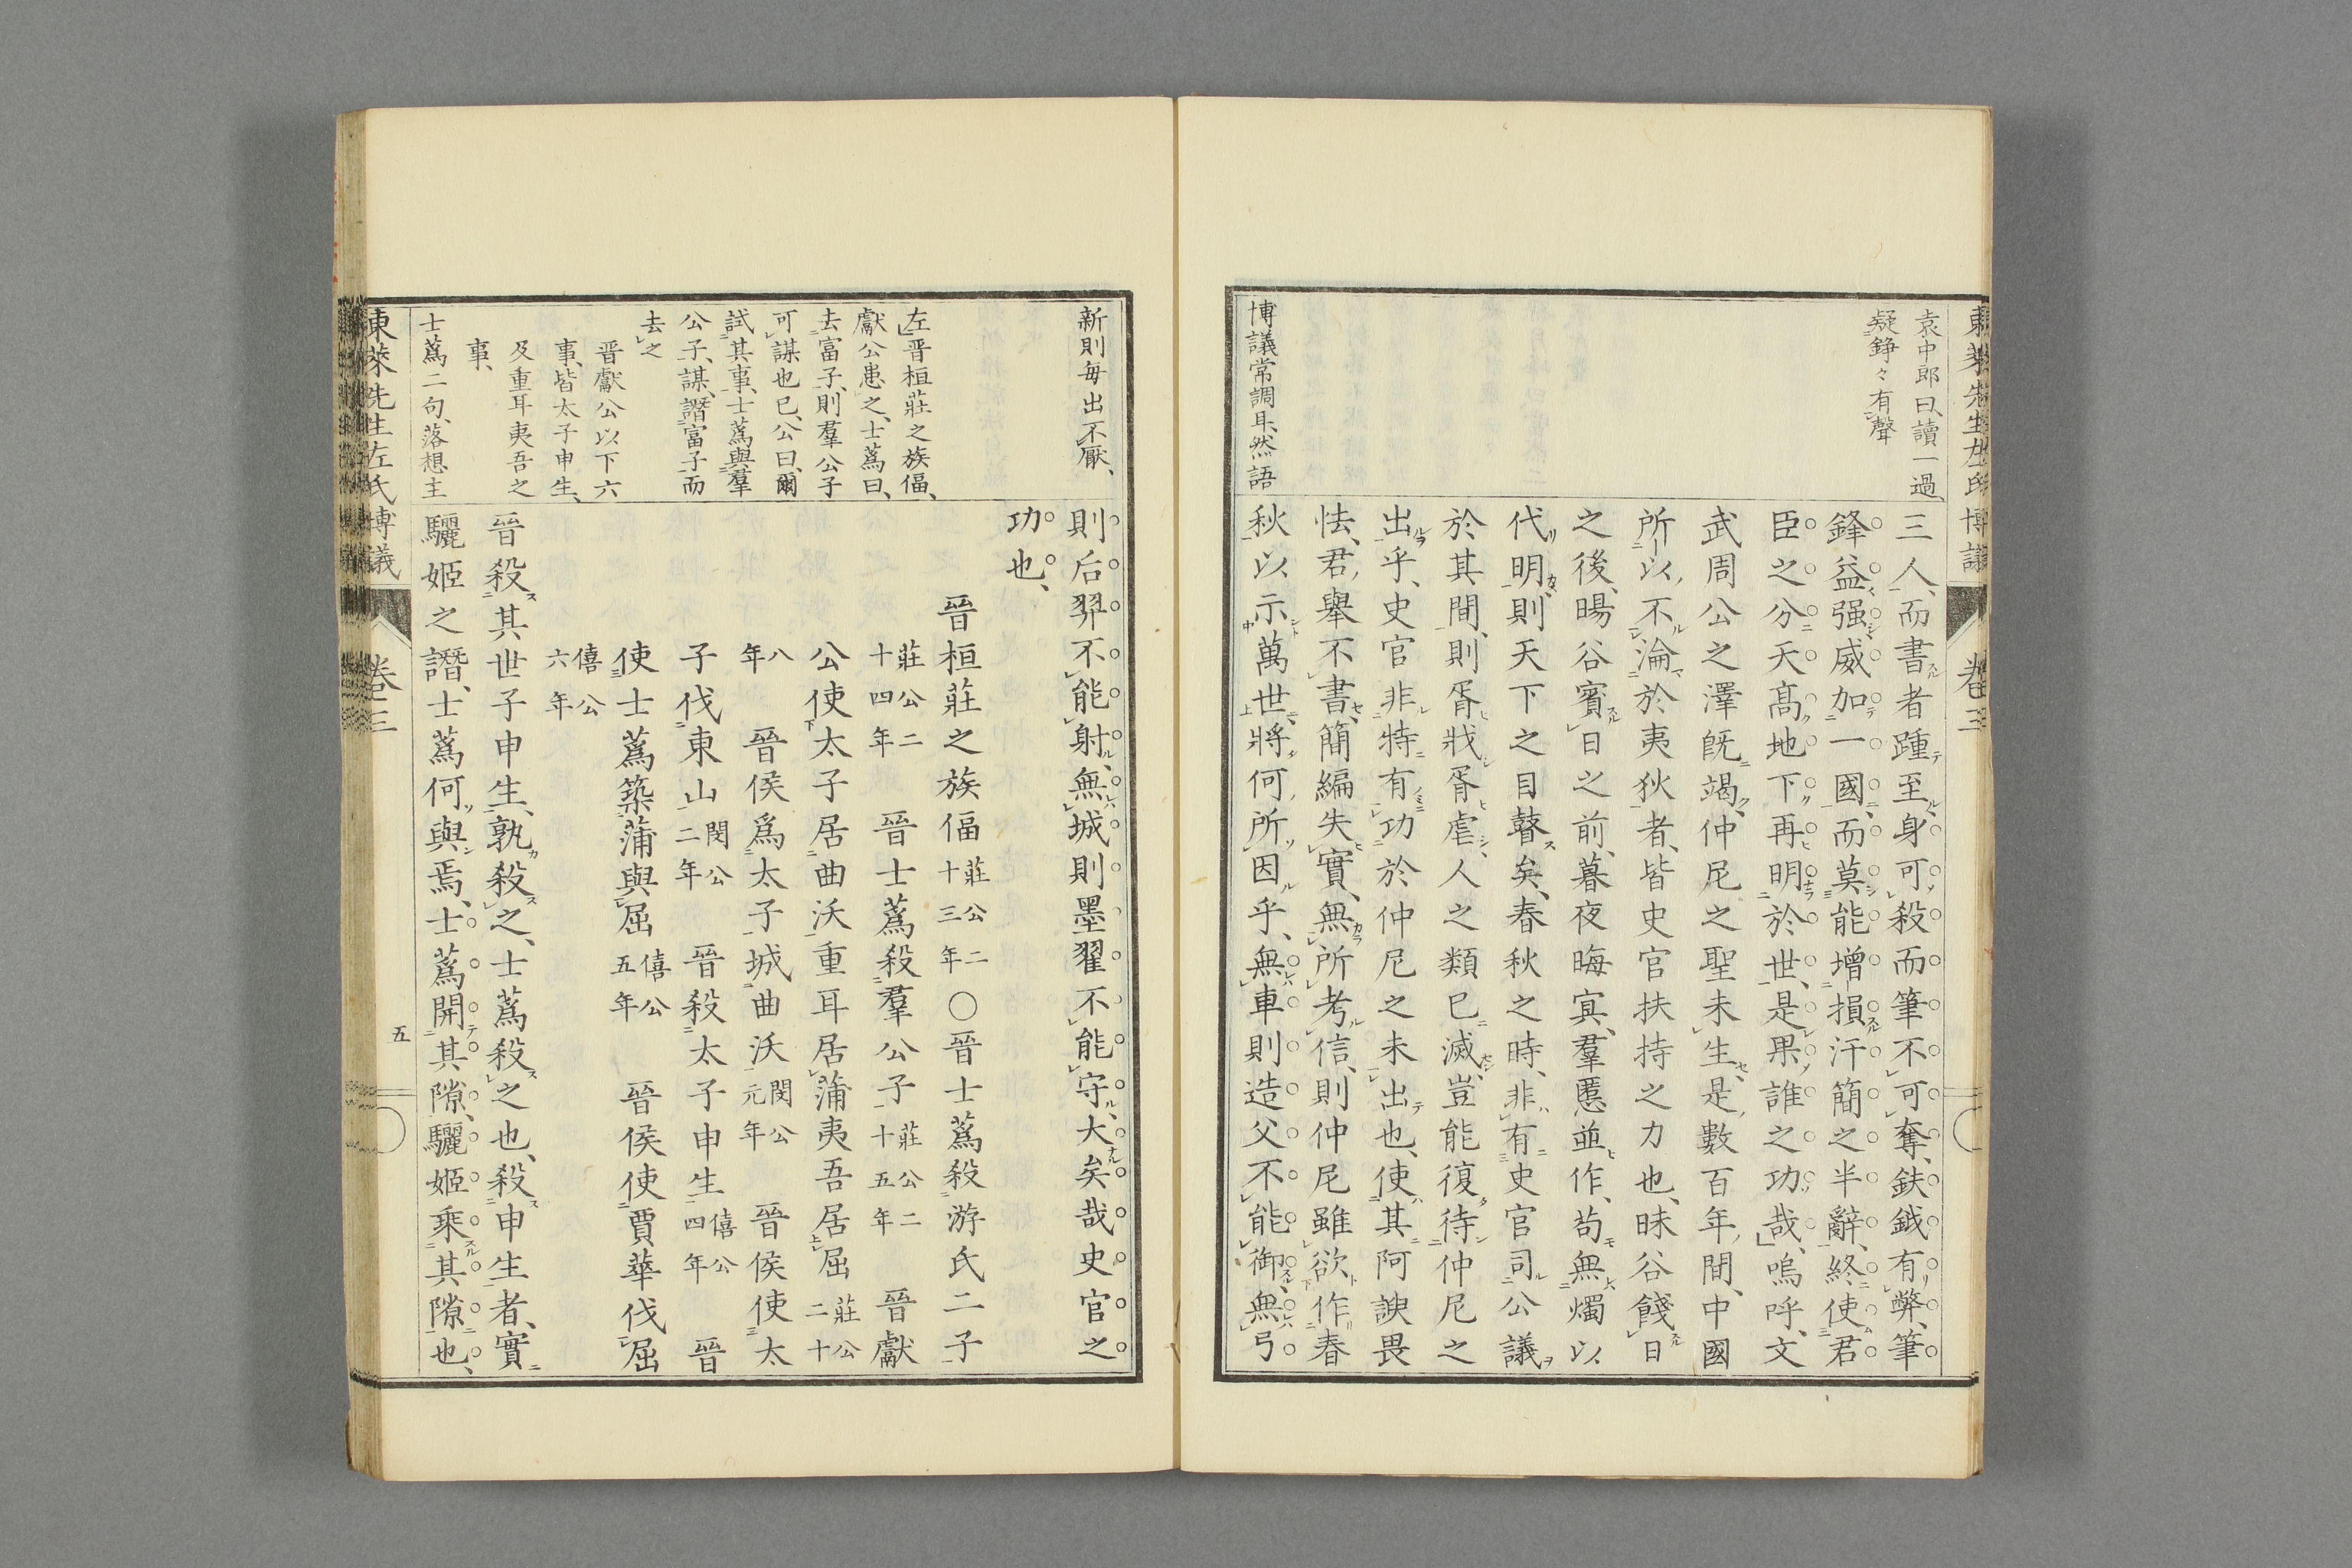 東萊先生左氏博議
卷三
袁中郎曰、讀一過、
凝錚々有聲
三人、而書者踵至、身可殺而筆不可奪、鈇鉞有弊、筆
鋒益强、威加一國、而莫能增損汗簡之半辭、終使君
臣之分、天髙地下、再明於世、是果誰之功哉、嗚呼、文
武周公之澤旣竭、仲尼之聖未生、是數百年間、中國
所以不淪於夷狄者、皆史官扶持之力也、昧谷餞日
之後、暘谷賓日之前、暮夜晦冥、羣慝並作、苟無燭以
代明、則天下之目瞽矣、春秋之時、非有史官司公議
於其間、則胥戕胥虐、人之類已滅、豈能復待仲尼之
出乎、史官非特有功於仲尼之未出也、使其阿諛畏
怯、君舉不書、簡編失實、無所考信、則仲尼雖欲作春
秋以示萬世、將何所因乎、無車則造父不能御、無弓
博議常調耳、然語
新則毎出不厭、
則后羿不能射、無城則墨翟不能守、大矣哉史官之
功也、
左晋桓莊之族偪、
獻公患之、士蔿曰、
去富子、則羣公子
可謀也已、公曰、爾
試其事、士蔿與羣
公子謀、譖富子而
去之
晋獻公以下六
事、皆太子申生、
及重耳夷吾之
事、
晉桓莊之族偪莊公二十三年〇晉士蔿殺游氏二子
莊公二十四年 晉士蔿殺羣公子莊公二十五年 晉獻
公使太子居曲沃重耳居蒲夷吾居屈莊公二十
八年 晉侯爲太子城曲沃閔公元年 晉侯使太
子伐東山閔公二年 晉殺太子申生僖公四年 晉
使士蔿築蒲與屈僖公五年 晉侯使賈華伐屈
僖公六年
晉殺其世子申生、孰殺之、士蔿殺之也、殺申生者、實
驪姬之譖、士蔿何與焉、士蔿開其隙、驪姬乘其隙也、
士蔿二句、落想主
東萊先生左氏博議
卷三
五